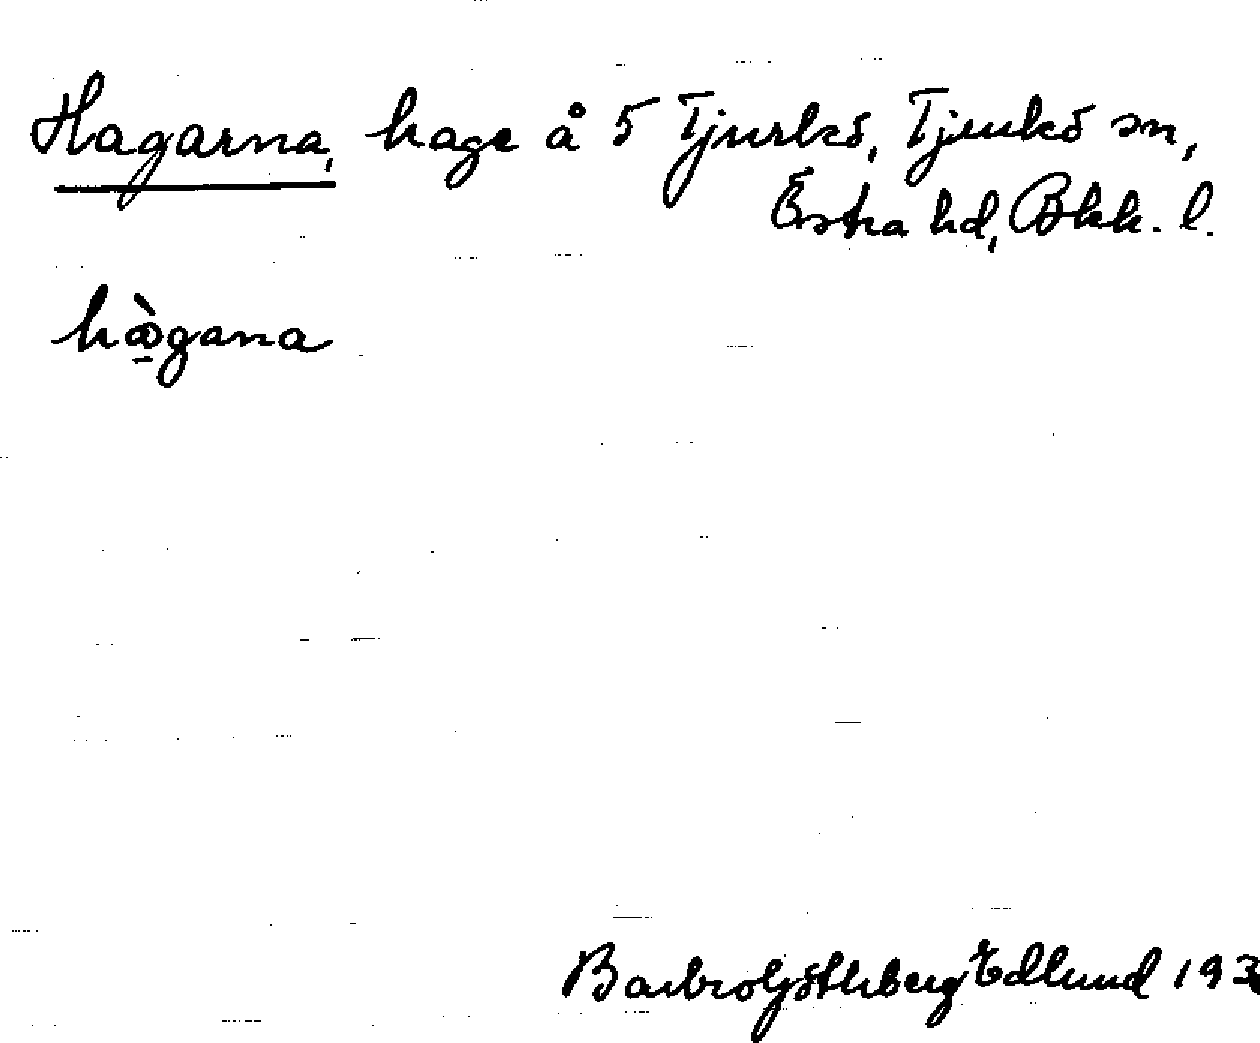 Hagarna, hage å 5 Tjurkö, Tjurkö sn,
Östra hd, Blek. l.
hagana
Barbro Edlund 193